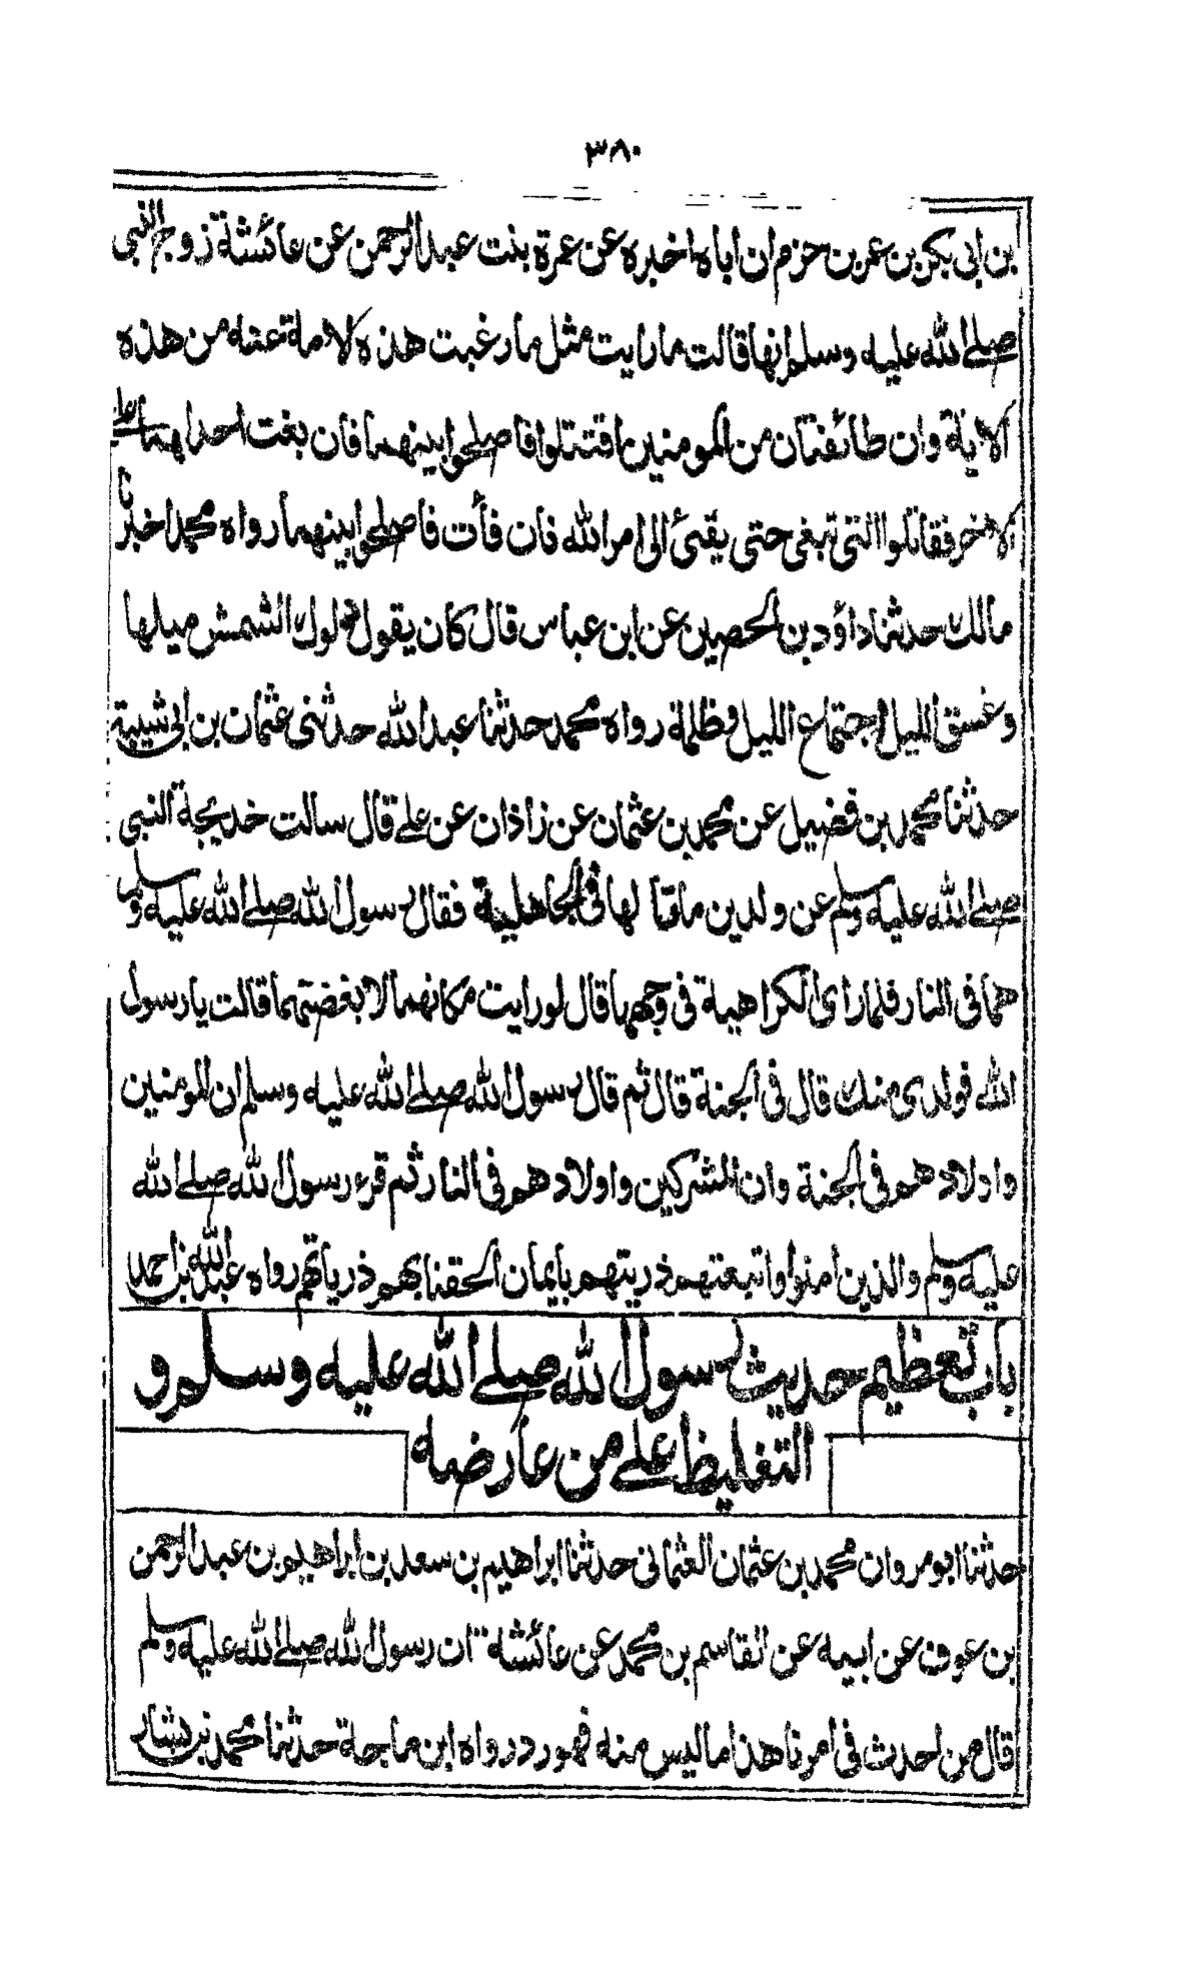 ٣٨٠
بن ابى بكر بن عمر بن حزم ان اباه اخبره عن عمرة بنت عبد الرحمن عن عائشة زوج النبى
صلى الله عليه وسلم انها قالت ما رايت مثل ما رغبت هذه الامة عنه من هذه
الاية وان طائفتان من المومنين اقتتلوا فاصلحوا بينهما فان بغت احدٰىهما على
الاخرى فقاتلوا التى تبغى حتى يفئ الى امر الله فان فأت فاصلحوا بينهما رواه محمد اخبرنا
مالك حدثنا داؤد بن الحصين عن ابن عباس قال كان يقول دلوك الشمس ميلها
وغسق الليل اجتماع الليل وظلمة رواه محمد حدثنا عبد الله حدثنى عثمان بن ابى شيبة
حدثنا محمد بن فضيل عن محمد بن عثمان عن زاذان عن على قال سالت خديجة النبى
صلى الله عليه وسلم عن ولدين ماتا لها فى الجاهلية فقال رسول الله صلى الله عليه وسلم
هما فى النار فلما راى الكراهية فى وجهها قال لو رايت مكانهما لابغضتهما قالت يا رسول
الله فولدى منك قال فى الجنة قال ثم قال رسول الله صلى الله عليه وسلم ان المومنين
واولادهم فى الجنة وان المشركين واولادهم فى النار ثم قرء رسول الله صلى الله
عليه وسلم والذين امنوا واتبعتهم ذريتهم بايمان الحقنا بهم ذرياتهم رواه عبد الله بن احمد
باب تعظيم حديث رسول الله صلى الله عليه وسلم و
التغليظ على من عارضه
حدثنا ابو مروان محمد بن عثمان العثمانى حدثنا ابراهيم بن سعد بن ابراهيم بن عبد الرحمن
بن عوف عن ابيه عن القاسم بن محمد عن عائشة ان رسول الله صلى الله عليه وسلم
قال من احدث فى امرنا هذا ما ليس منه فهو رد رواه ابن ماجة حدثنا محمد بن بشار